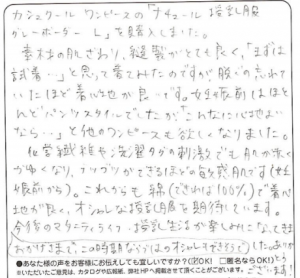 カシュクール ワンピースの「ナチュール 授乳服
グレーボーダー L」を購入しました。
素材の肌ざわり、縫製がとても良く、「まずは
試着…」と思って着てみたのですが脱ぐの忘れて
いたほど着心地が良かったです。妊娠前はほと
んどパンツスタイルでしたが「こんなに心地よい
なら…」と他のワンピースも欲しくなりました。
化学繊維や洗濯タグの刺激でも肌が赤く
かゆくなり、ブツブツができるほどの敏感肌です(妊
娠前から)。これからも綿(できれば100%)で着心
地が良く、オシャレな授乳服を期待しています。
今後のマタニティライフ・授乳生活が楽しみになってきま
おかげさまで、この時期ならではのオシャレもできそうで
●あなた様の声をお客様にお伝えしても宜しいですか?☑OK! □匿名ならOK!
※いただいたご意見は、カタログや広報紙、弊社HPへ掲載させて頂くことがございます。